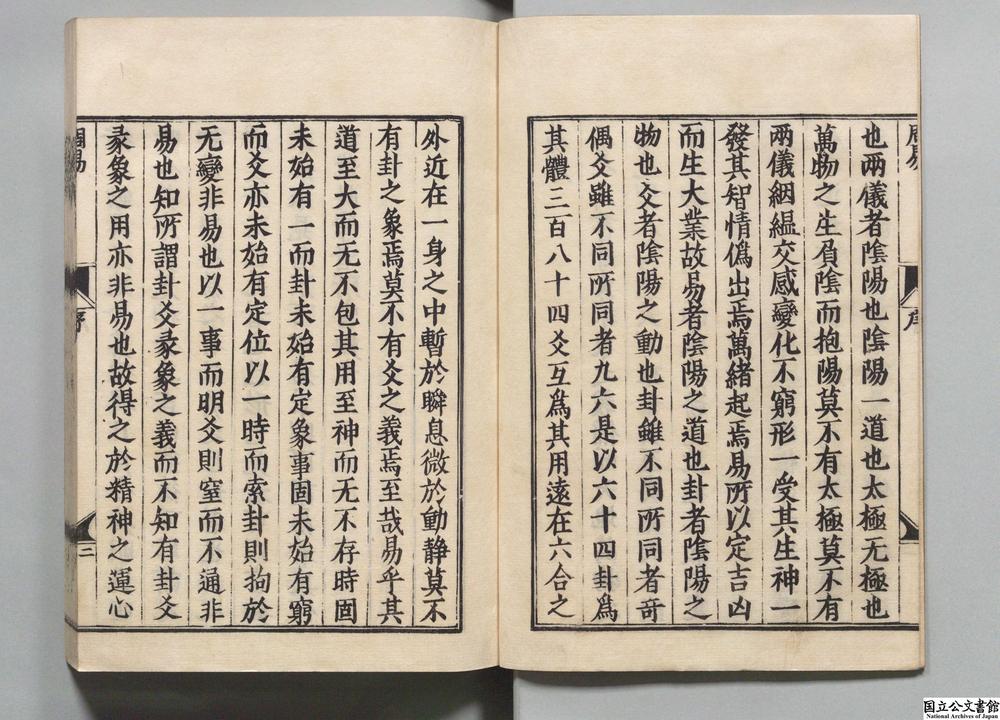 周易
序
也兩儀者陰陽也陰陽一道也太極无極也
萬物之生負陰而抱陽莫不有太極莫不有
兩儀絪緼交感變化不窮形一受其生神一
發其智情僞出焉萬緒起焉易所以定吉凶
而生大業故易者陰陽之道也卦者陰陽之
物也爻者陰陽之動也卦雖不同所同者竒
偶爻雖不同所同者九六是以六十四卦爲
其體三百八十四爻互爲其用遠在六合之
外近在一身之中暫於瞬息微於動静莫不
有卦之象焉莫不有爻之義焉至哉易乎其
道至大而无不包其用至神而无不存時固
未始有一而卦未始有定象事固未始有窮
而爻亦未始有定位以一時而索卦則拘於
无變非易也以一事而明爻則窒而不通非
易也知所謂卦爻彖象之義而不知有卦爻
彖象之用亦非易也故得之於精神之運心
周易
序
二
国立公文書館
National Archives of Japan